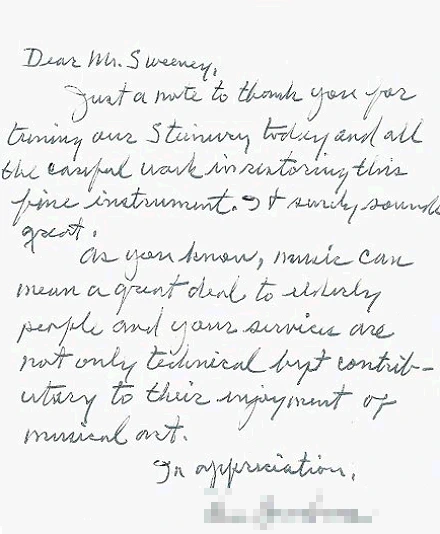 Dear Mr. Sweeney,
Just a note to thank you for
tuning our Steinway today and all
the careful work in restoring this
fine instrument. It surely sounds
great.
As you know, music can
mean a great deal to elderly
people and your services are
not only technical bypt contrib-
utary to their injoyment of
musical art.
In appreciation,